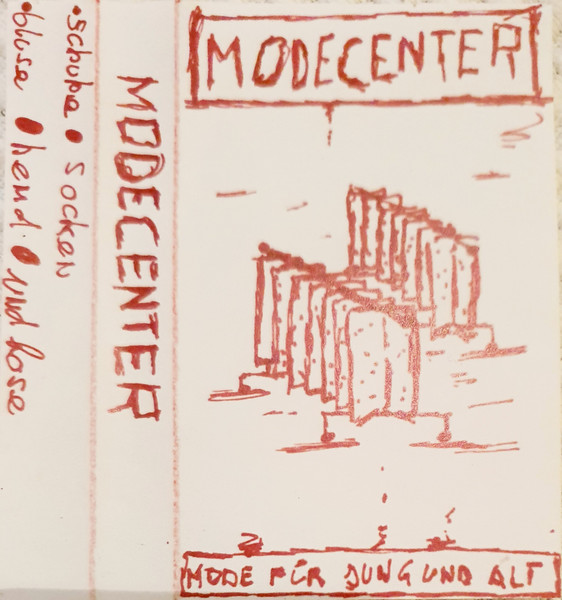 MODECENTER
MODE FÜR JUNG UND ALT
MODECENTER
•schuhe • socken
•bluse • hemd • und hose